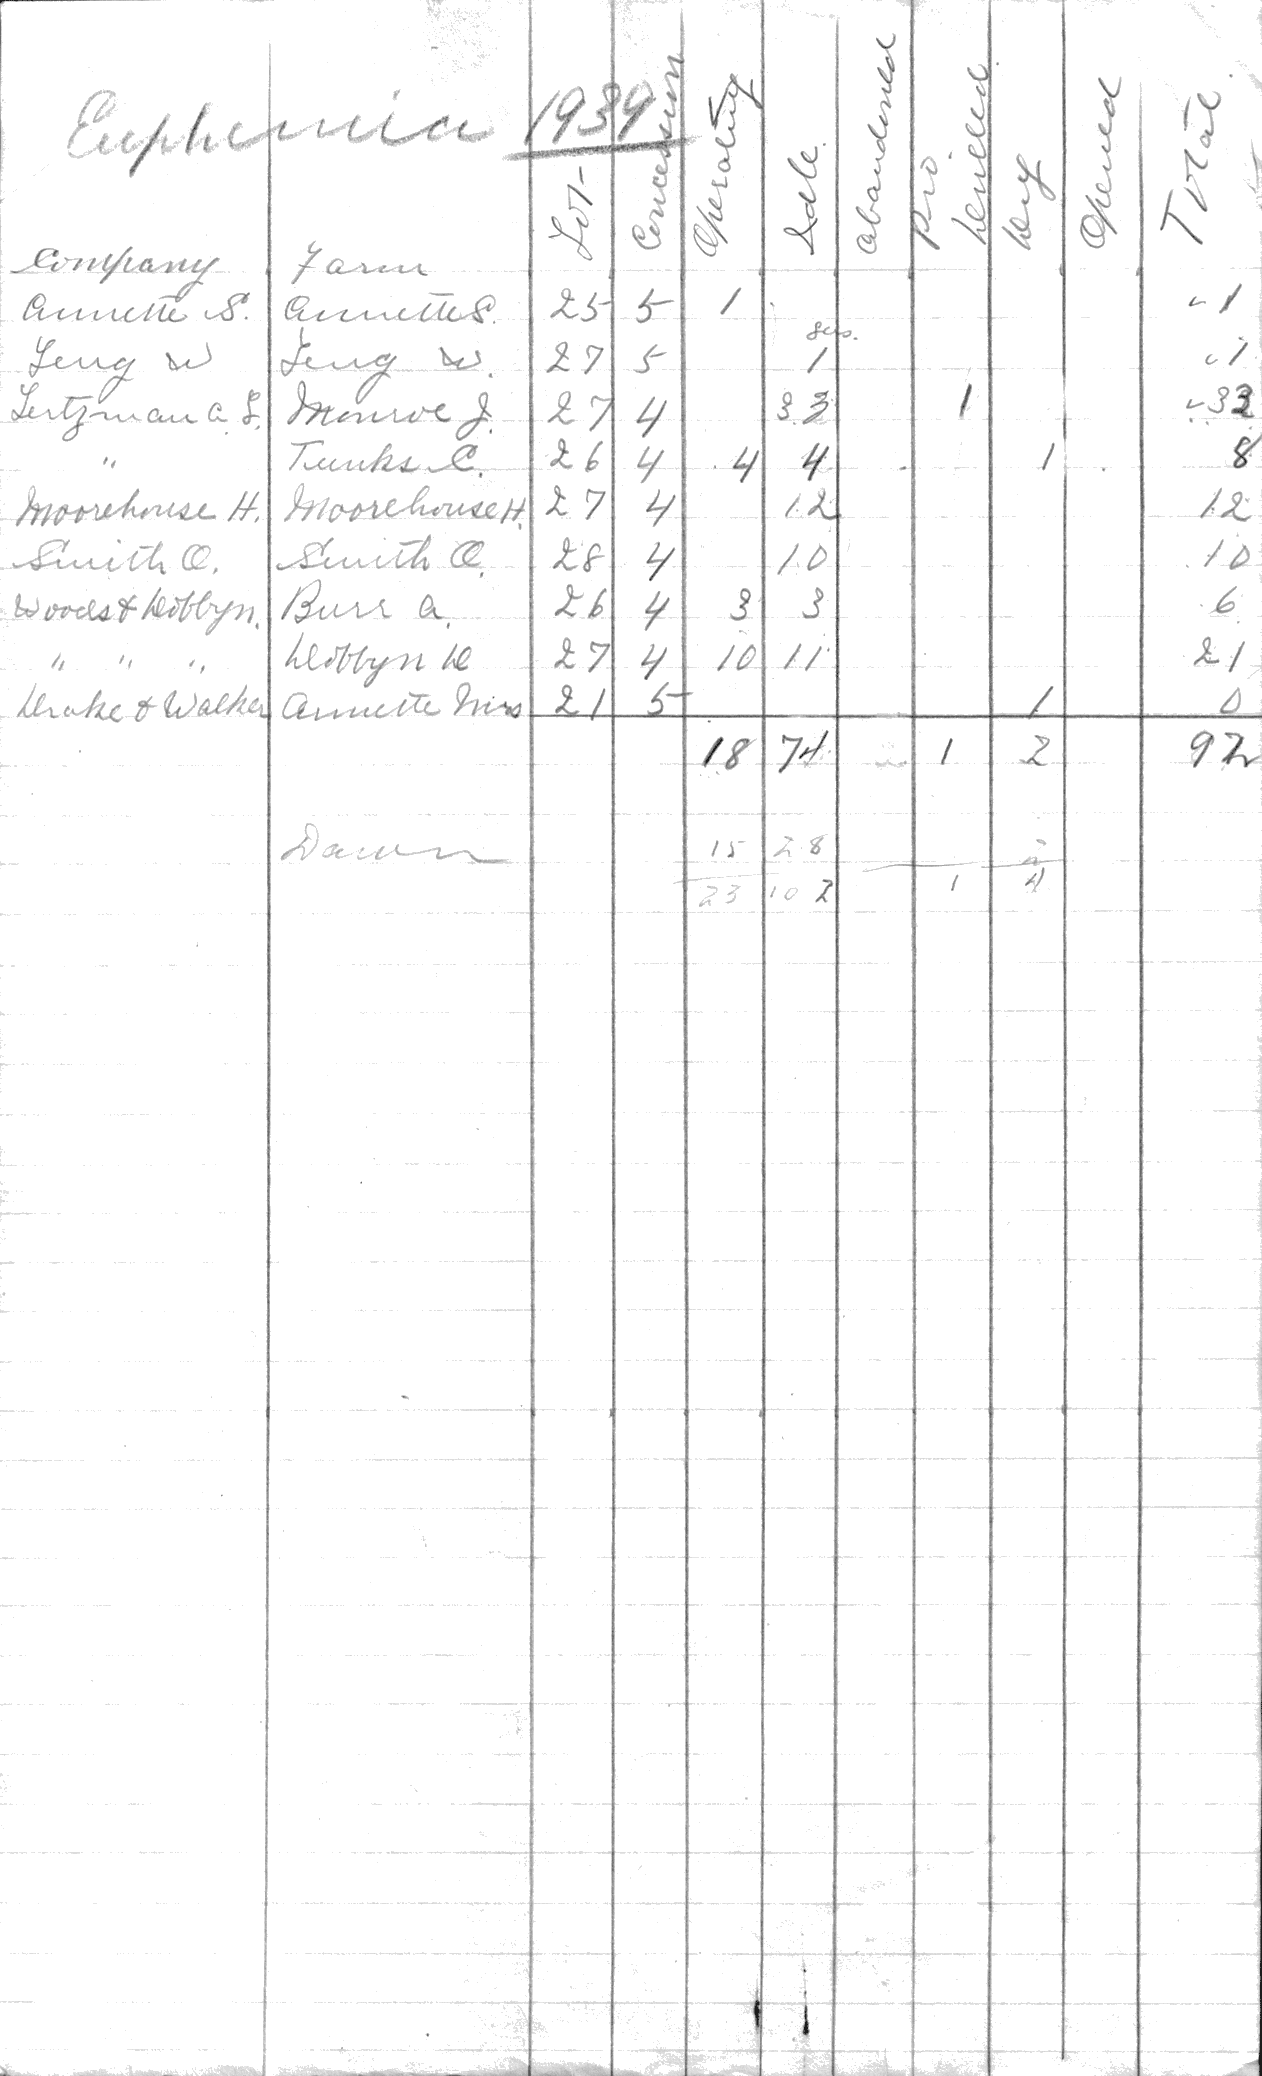 Euphemia 1939
Company Farm Lot Concession Operating Idle Abandoned Pro Drilled Dry Opened Total
Annette S. Annette S. 25 5 1 1
Leng W Leng W. 27 5 gas. 1 1
Lertzman A. L. Monroe J. 27 4 33 1 33
" Tunks C. 26 4 4 4 1 8
Moorehouse H. Moorehouse H. 27 4 12 12
Smith O. Smith O. 28 4 10 10
Woods & Dobbyn. Burr A. 26 4 3 3 6
" " " Dobbyn D 27 4 10 11 21
Drake & Walker Annette Mrs 21 5 1 0
18 74 1 2 92
Dawn 15 28 2
23 10 2 1 4